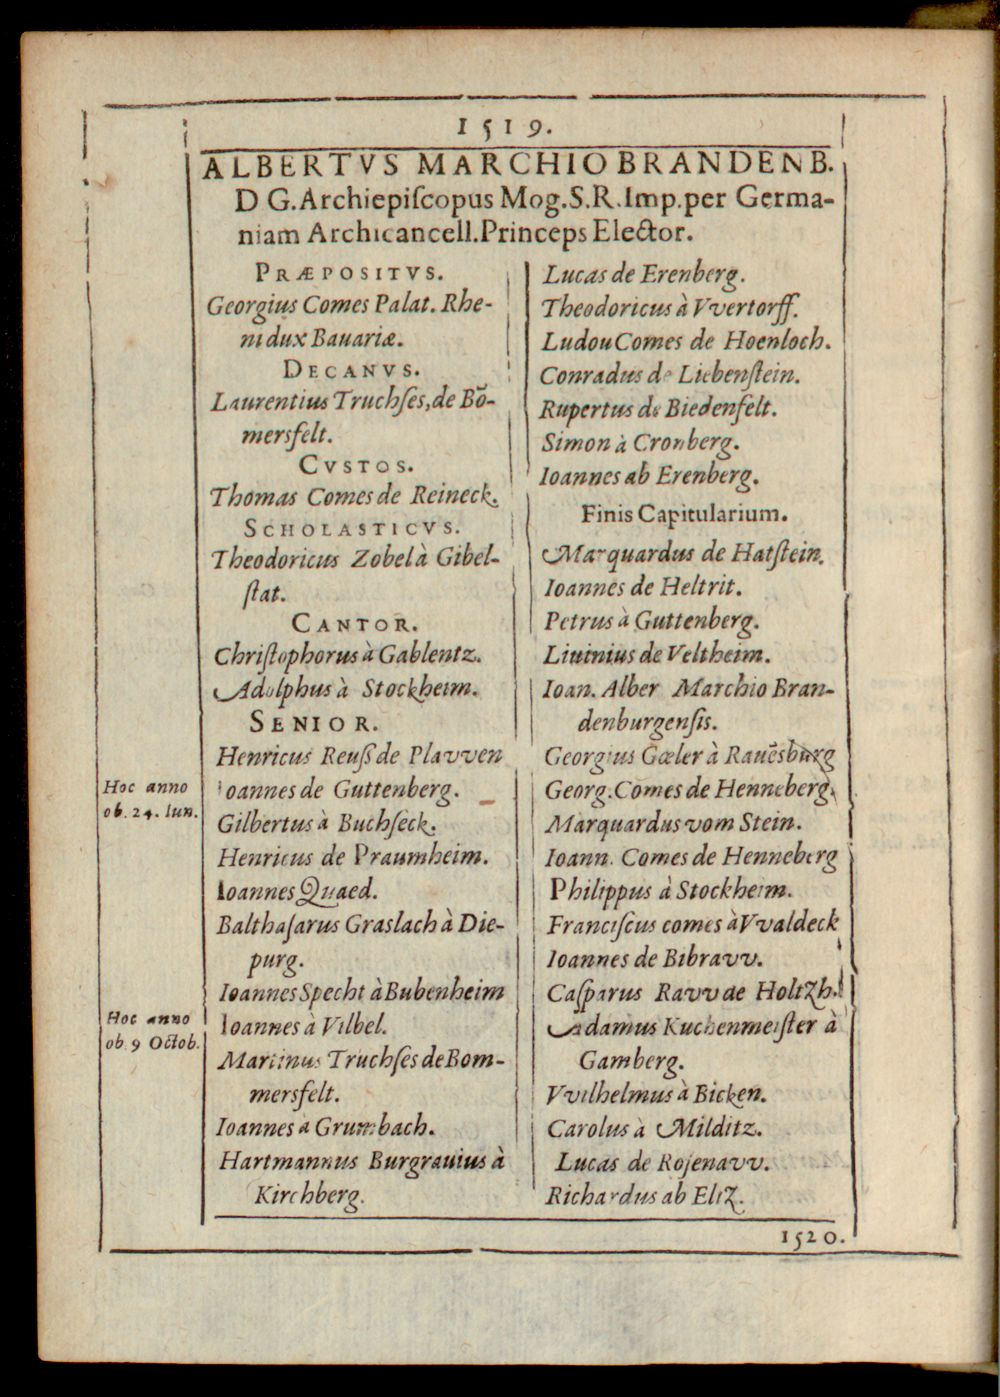 1519.
ALBERTVS MARCHIO BRANDENB.
D G. Archiepiſcopus Mog. S. R. Imp. per Germa-
niam Archicancell. Princeps Elector.
PRÆPOSITVS.
Georgius Comes Palat. Rhe-
ni dux Bauariæ.
DECANVS.
Laurentius Truchſes, de Bō-
mersfelt.
CVSTOS.
Thomas Comes de Reineck.
SCHOLASTICVS.
Theodoricus Zobel à Gibel-
ſtat.
CANTOR.
Chriſtophorus à Gablentz.
Adolphus à Stockheim.
SENIOR.
Henricus Reuß de Plavven
Hoc anno
ob. 24. Iun.
Ioannes de Guttenberg.
Gilbertus à Buchſeck.
Henricus de Praumheim.
Ioannes Quaed.
Balthaſarus Graslach à Die-
purg.
Ioannes Specht à Bubenheim
Hoc anno
ob. 9 Octob.
Ioannes à Vilbel.
Martinus Truchſes de Bom-
mersfelt.
Ioannes à Grumbach.
Hartmannus Burgrauius à
Kirchberg.
Lucas de Erenberg.
Theodoricus à Vvertorff.
Ludou Comes de Hoenloch.
Conradus de Liebenſtein.
Rupertus de Biedenfelt.
Simon à Cronberg.
Ioannes ab Erenberg.
Finis Capitularium.
Marquardus de Hatſtein.
Ioannes de Heltrit.
Petrus à Guttenberg.
Liuinius de Veltheim.
Ioan. Alber Marchio Bran-
denburgenſis.
Georgius Gœler à Rauēsburg
Georg. Comes de Henneberg.
Marquardus vom Stein.
Ioann. Comes de Henneberg
Philippus à Stockheim.
Franciſcus comes à Vvaldeck
Ioannes de Bibravv.
Caſparus Ravv de Holtzh.
Adamus Kuchenmeiſter à
Gamberg.
Vvilhelmus à Bicken.
Carolus à Milditz.
Lucas de Roſenavv.
Richardus ab Eltz.
1520.